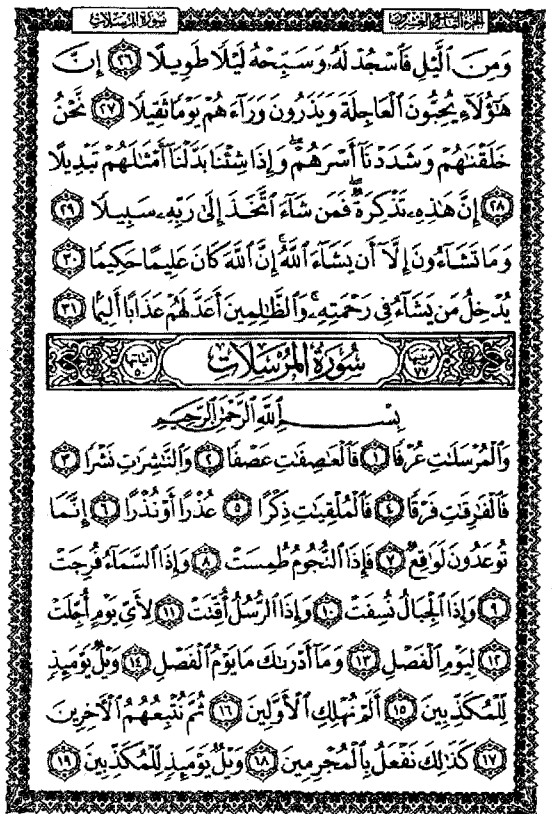 الجزء التاسع والعشرون سورة المرسلات
وَمِنَ ٱلَّيْلِ فَٱسْجُدْ لَهُۥ وَسَبِّحْهُ لَيْلًا طَوِيلًا ٢٦ إِنَّ
هَٰٓؤُلَآءِ يُحِبُّونَ ٱلْعَاجِلَةَ وَيَذَرُونَ وَرَآءَهُمْ يَوْمًا ثَقِيلًا ٢٧ نَّحْنُ
خَلَقْنَٰهُمْ وَشَدَدْنَآ أَسْرَهُمْ ۖ وَإِذَا شِئْنَا بَدَّلْنَآ أَمْثَٰلَهُمْ تَبْدِيلًا
٢٨ إِنَّ هَٰذِهِۦ تَذْكِرَةٌ ۖ فَمَن شَآءَ ٱتَّخَذَ إِلَىٰ رَبِّهِۦ سَبِيلًا ٢٩
وَمَا تَشَآءُونَ إِلَّآ أَن يَشَآءَ ٱللَّهُ ۚ إِنَّ ٱللَّهَ كَانَ عَلِيمًا حَكِيمًا ٣٠
يُدْخِلُ مَن يَشَآءُ فِى رَحْمَتِهِۦ ۚ وَٱلظَّٰلِمِينَ أَعَدَّ لَهُمْ عَذَابًا أَلِيمًۢا ٣١
ترتيبها ٧٧ سورة المرسلات آياتها ٥٠
بِسْمِ ٱللَّهِ ٱلرَّحْمَٰنِ ٱلرَّحِيمِ
وَٱلْمُرْسَلَٰتِ عُرْفًا ١ فَٱلْعَٰصِفَٰتِ عَصْفًا ٢ وَٱلنَّٰشِرَٰتِ نَشْرًا ٣
فَٱلْفَٰرِقَٰتِ فَرْقًا ٤ فَٱلْمُلْقِيَٰتِ ذِكْرًا ٥ عُذْرًا أَوْ نُذْرًا ٦ إِنَّمَا
تُوعَدُونَ لَوَٰقِعٌ ٧ فَإِذَا ٱلنُّجُومُ طُمِسَتْ ٨ وَإِذَا ٱلسَّمَآءُ فُرِجَتْ
٩ وَإِذَا ٱلْجِبَالُ نُسِفَتْ ١٠ وَإِذَا ٱلرُّسُلُ أُقِّتَتْ ١١ لِأَىِّ يَوْمٍ أُجِّلَتْ
١٢ لِيَوْمِ ٱلْفَصْلِ ١٣ وَمَآ أَدْرَىٰكَ مَا يَوْمُ ٱلْفَصْلِ ١٤ وَيْلٌ يَوْمَئِذٍ
لِّلْمُكَذِّبِينَ ١٥ أَلَمْ نُهْلِكِ ٱلْأَوَّلِينَ ١٦ ثُمَّ نُتْبِعُهُمُ ٱلْءَاخِرِينَ
١٧ كَذَٰلِكَ نَفْعَلُ بِٱلْمُجْرِمِينَ ١٨ وَيْلٌ يَوْمَئِذٍ لِّلْمُكَذِّبِينَ ١٩